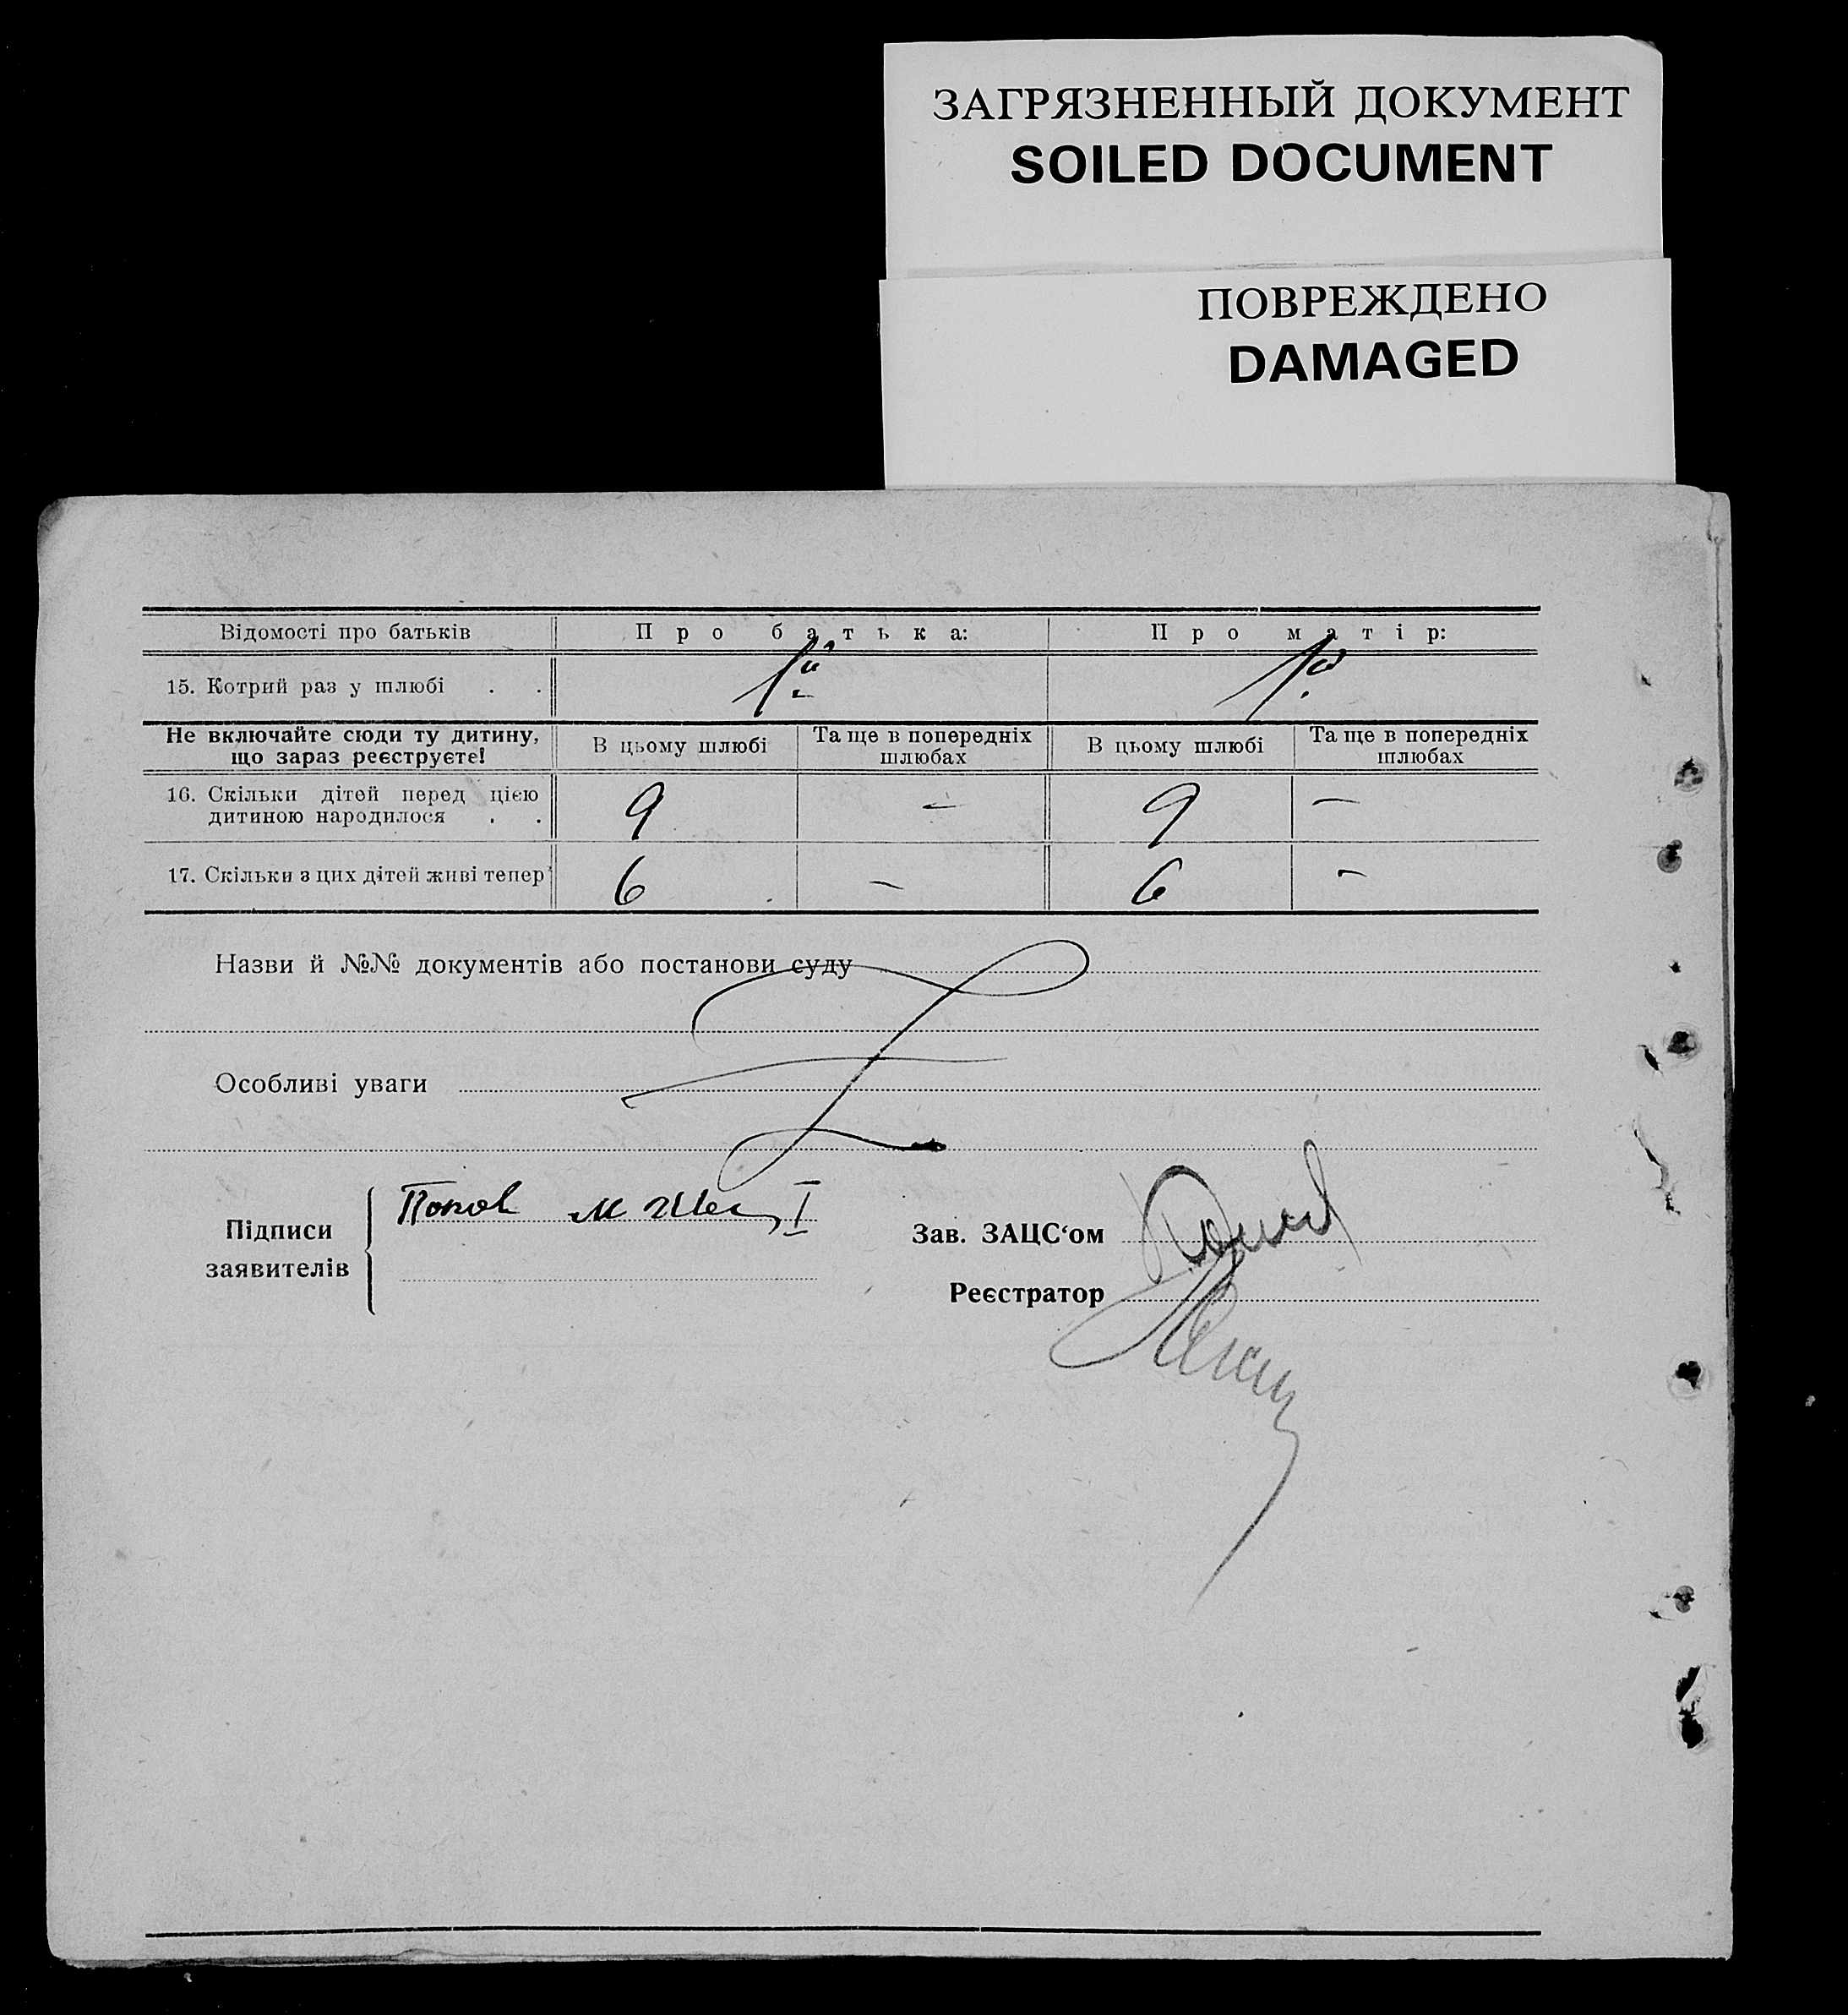 ЗАГРЯЗНЕННЫЙ ДОКУМЕНТ
SOILED DOCUMENT
ПОВРЕЖДЕНО
DAMAGED
Відомості про батьків Про батька: Про матір:
15. Котрий раз у шлюбі . . 1й 1й
Не включайте сюди ту дитину, що зараз реєструєте! В цьому шлюбі Та ще в попередніх шлюбах В цьому шлюбі Та ще в попередніх шлюбах
16. Скільки дітей перед цією
дитиною народилося . . 9 – 9 –
17. Скільки з цих дітей живі тепер 6 – 6 –
Назви й №№ документів або постанови суду
Особливі уваги
Підписи
заявителів
Зав. ЗАЦС‘ом
Реєстратор